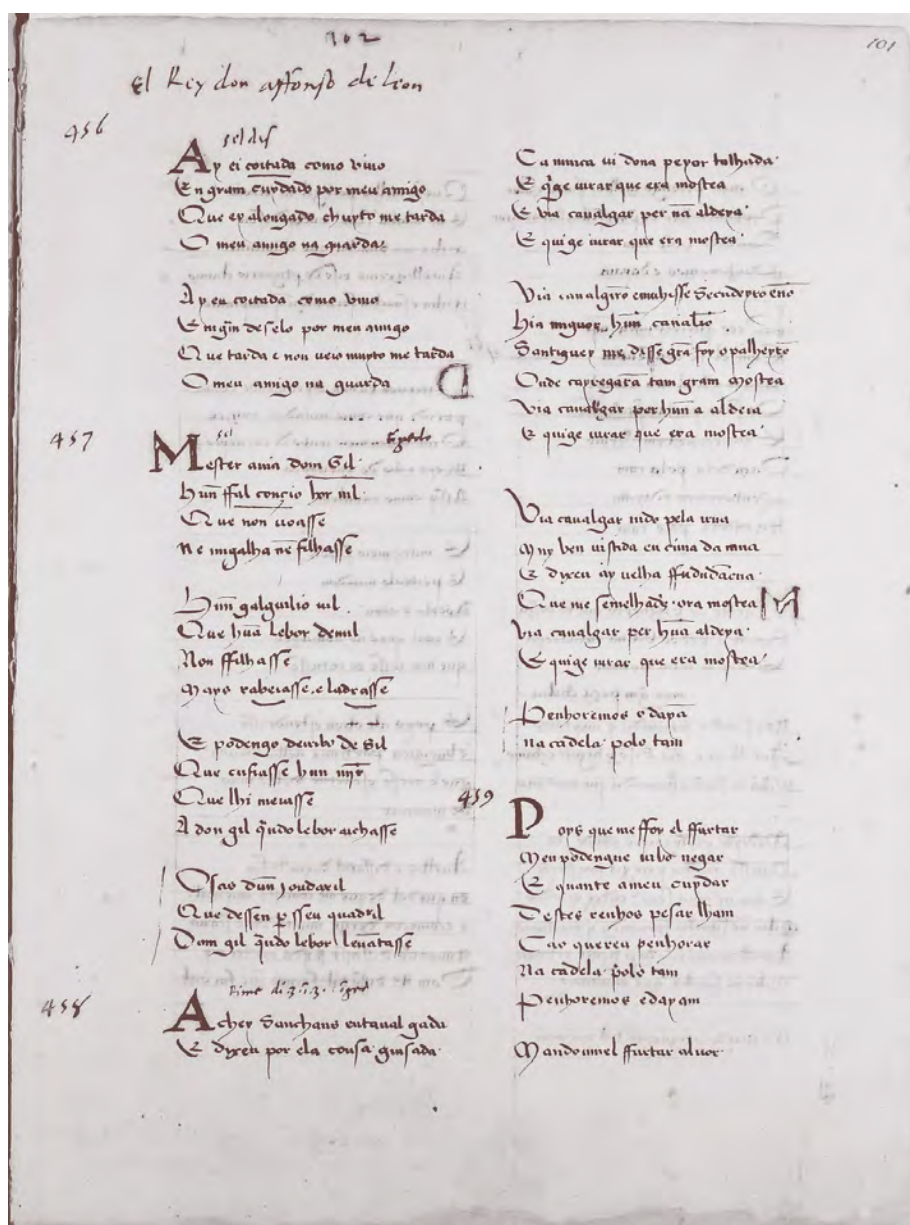 102
101
El Rey don affonso de leon
456
sel dis
Ay ei coitada como vivo
En gram cuydado por meu amigo
Que ey alongado, chuyto me tarda
O meu amigo na guarda
Ay eu coitada como vivo
E ni gñ deselo por meu amigo
Que tarda e non veio muyto me tarda
O meu amigo na guarda
457
Mester avia dom Gil
Hun ffal conçio bor nil
Que non uoasse
Ne migalha nẽ filhasse
Hũn galguilio uil
Que huã lebor demil
Non ffilhasse
Mays rabeiasse, e ladrasse
E podengo derribo de Sil
Que cusiasse hun
Que lhi meiasse
A don gil qñdo lebor achasse
Osas dũn zoudaxil
Que dessen p sseu quadril
Dom gil qñdo lebor levãtasse
458
Achey Sanchans entaval gada
E dixeu por ela cousa guisada
Ca nunca ui dona peyor talhada
E qige iurar que era mostea
E via cavalgar per nã aldeya
E quige iurar que era mostea
Via cavalgar
Hia miguor hũn cavalio
Santiguey me, disse grã foy o palheyro
Onde carregarã tam gram mostea
Via cavalgar por hũn a aldeia
E quige iurar que era mostea
Via cavalgar indo pela
Muy ben vistida en cima da mua
E dixeu ay velha ffududãcua
Que me semelhade ora mostea
Via cavalgar per huã aldeya
E quige iurar que era mostea
Penhoremos o dayã
na cadela polo tam
459
Poys que me ffoy el ffurtar
Meu podengue
E quante a meu cuydar
Destes penhos pesar lham
Cao quereu penhorar
Na cadela polo tam
Penhoremos edayam
Mandoumel ffurtar aluor